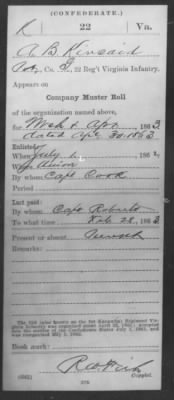 (CONFEDERATE.)
K 22 Va.
A B Kincaid
Co. 22 Reg't Virginia Infantry.
Appears on
Company Muster Roll
of the organization named above,
for Mch & Apr, 1863
dated Apr 30 1863
Enlisted:
When July 1, 1861
Where Union
By whom Capt Cook
Period
Last paid:
By whom Capt Roberts
To what time Feb 28, 1863
Present or absent Present
Remarks:
Book mark:
R W Fish
(642) Copyist.